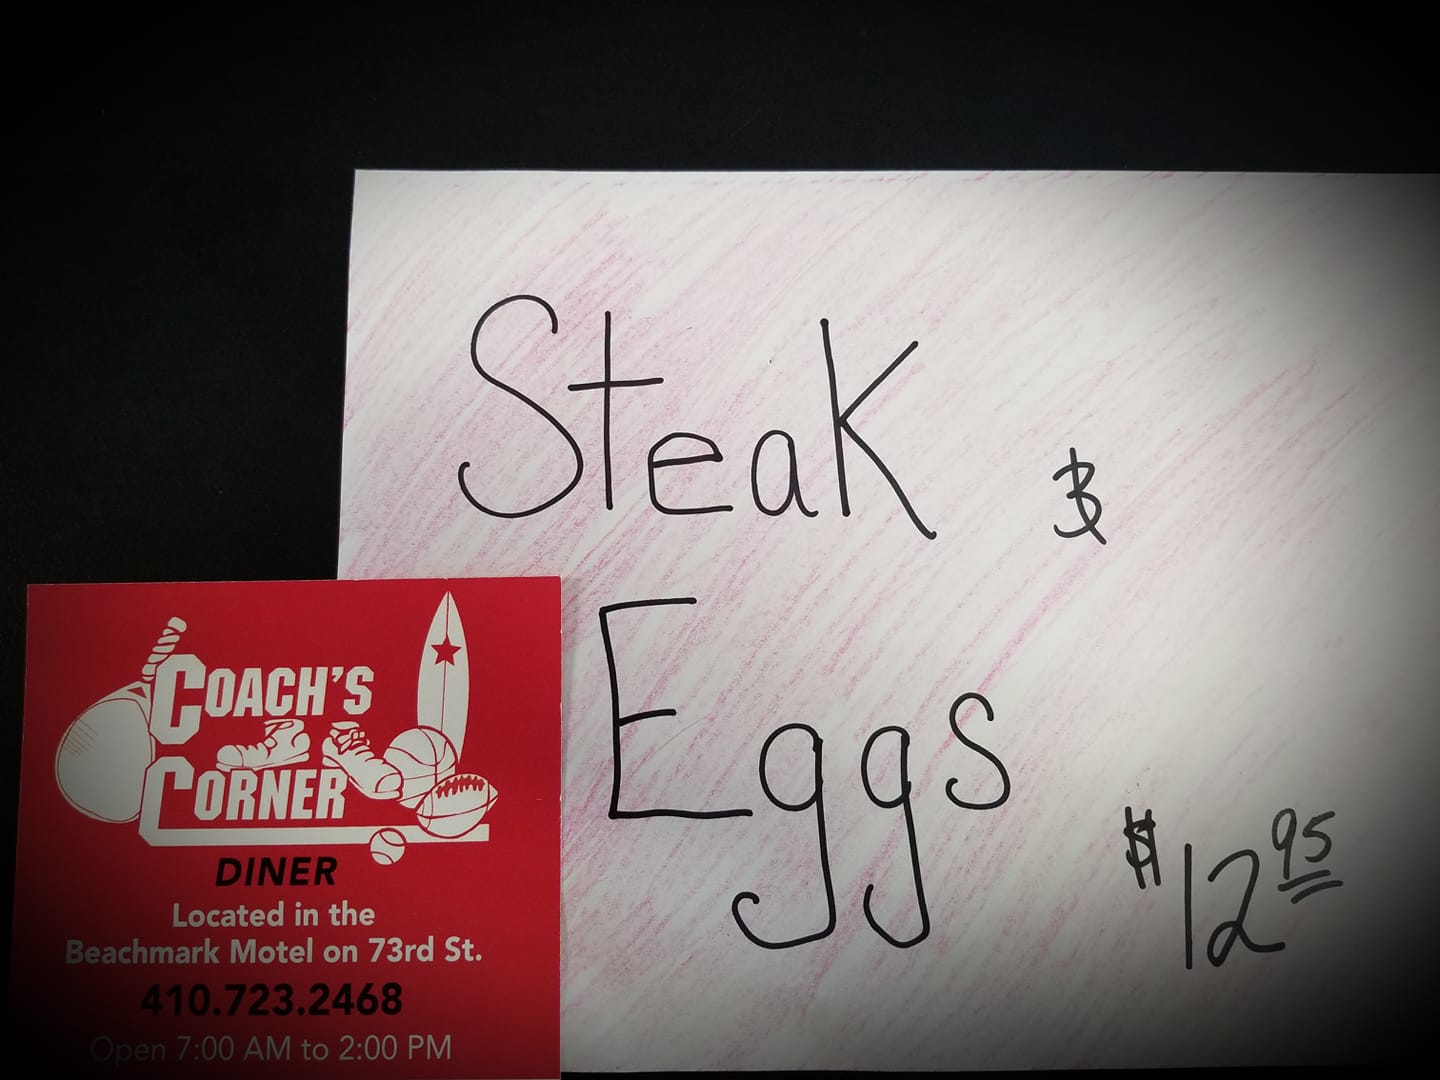 Steak &
Eggs
$12.95
COACH'S
CORNER
DINER
Located in the
Beachmark Motel on 73rd St.
410.723.2468
Open 7:00 AM to 2:00 PM